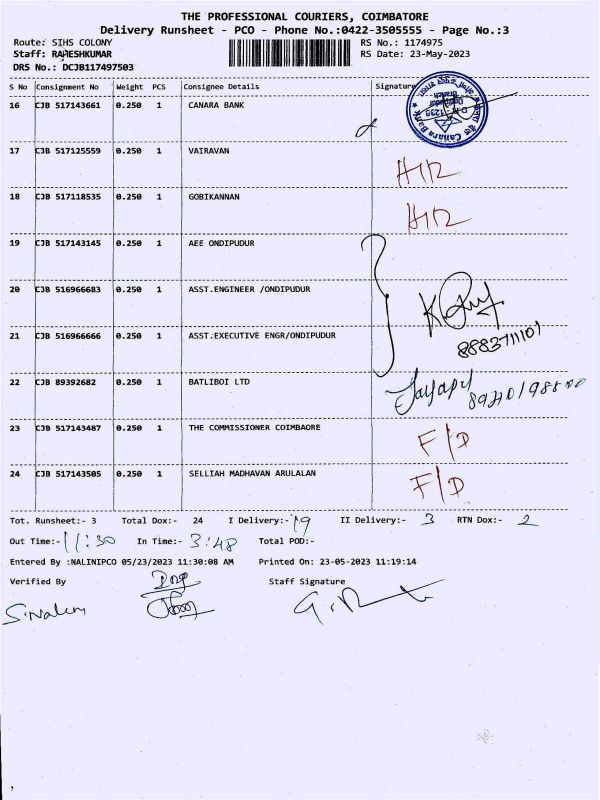 THE PROFESSIONAL COURIERS, COIMBATORE
Delivery Runsheet - PCO - Phone No.:0422-3505555 - Page No.:3
Route: SIHS COLONY RS No.: 1174975
Staff: RAJESHKUMAR RS Date: 23-May-2023
DRS No.: DCJB117497503
S No Consignment No Weight PCS Consignee Details Signature
16 CJB 517143661 0.250 1 CANARA BANK
17 CJB 517125559 0.250 1 VAIRAVAN
18 CJB 517118535 0.250 1 GOBIKANNAN
19 CJB 517143145 0.250 1 AEE ONDIPUDUR
20 CJB 516966683 0.250 1 ASST.ENGINEER /ONDIPUDUR
21 CJB 516966666 0.250 1 ASST.EXECUTIVE ENGR/ONDIPUDUR
8883711101
22 CJB 89392682 0.250 1 BATLIBOI LTD
23 CJB 517143487 0.250 1 THE COMMISSIONER COIMBAORE F/D
24 CJB 517143505 0.250 1 SELLIAH MADHAVAN ARULALAN F/D
Tot. Runsheet:- 3 Total Dox:- 24 I Delivery:- 19 II Delivery:- 3 RTN Dox:- 2
Out Time:- 11:30 In Time:- 3:48 Total POD:-
Entered By :NALINIPCO 05/23/2023 11:30:08 AM Printed On: 23-05-2023 11:19:14
Verified By Staff Signature